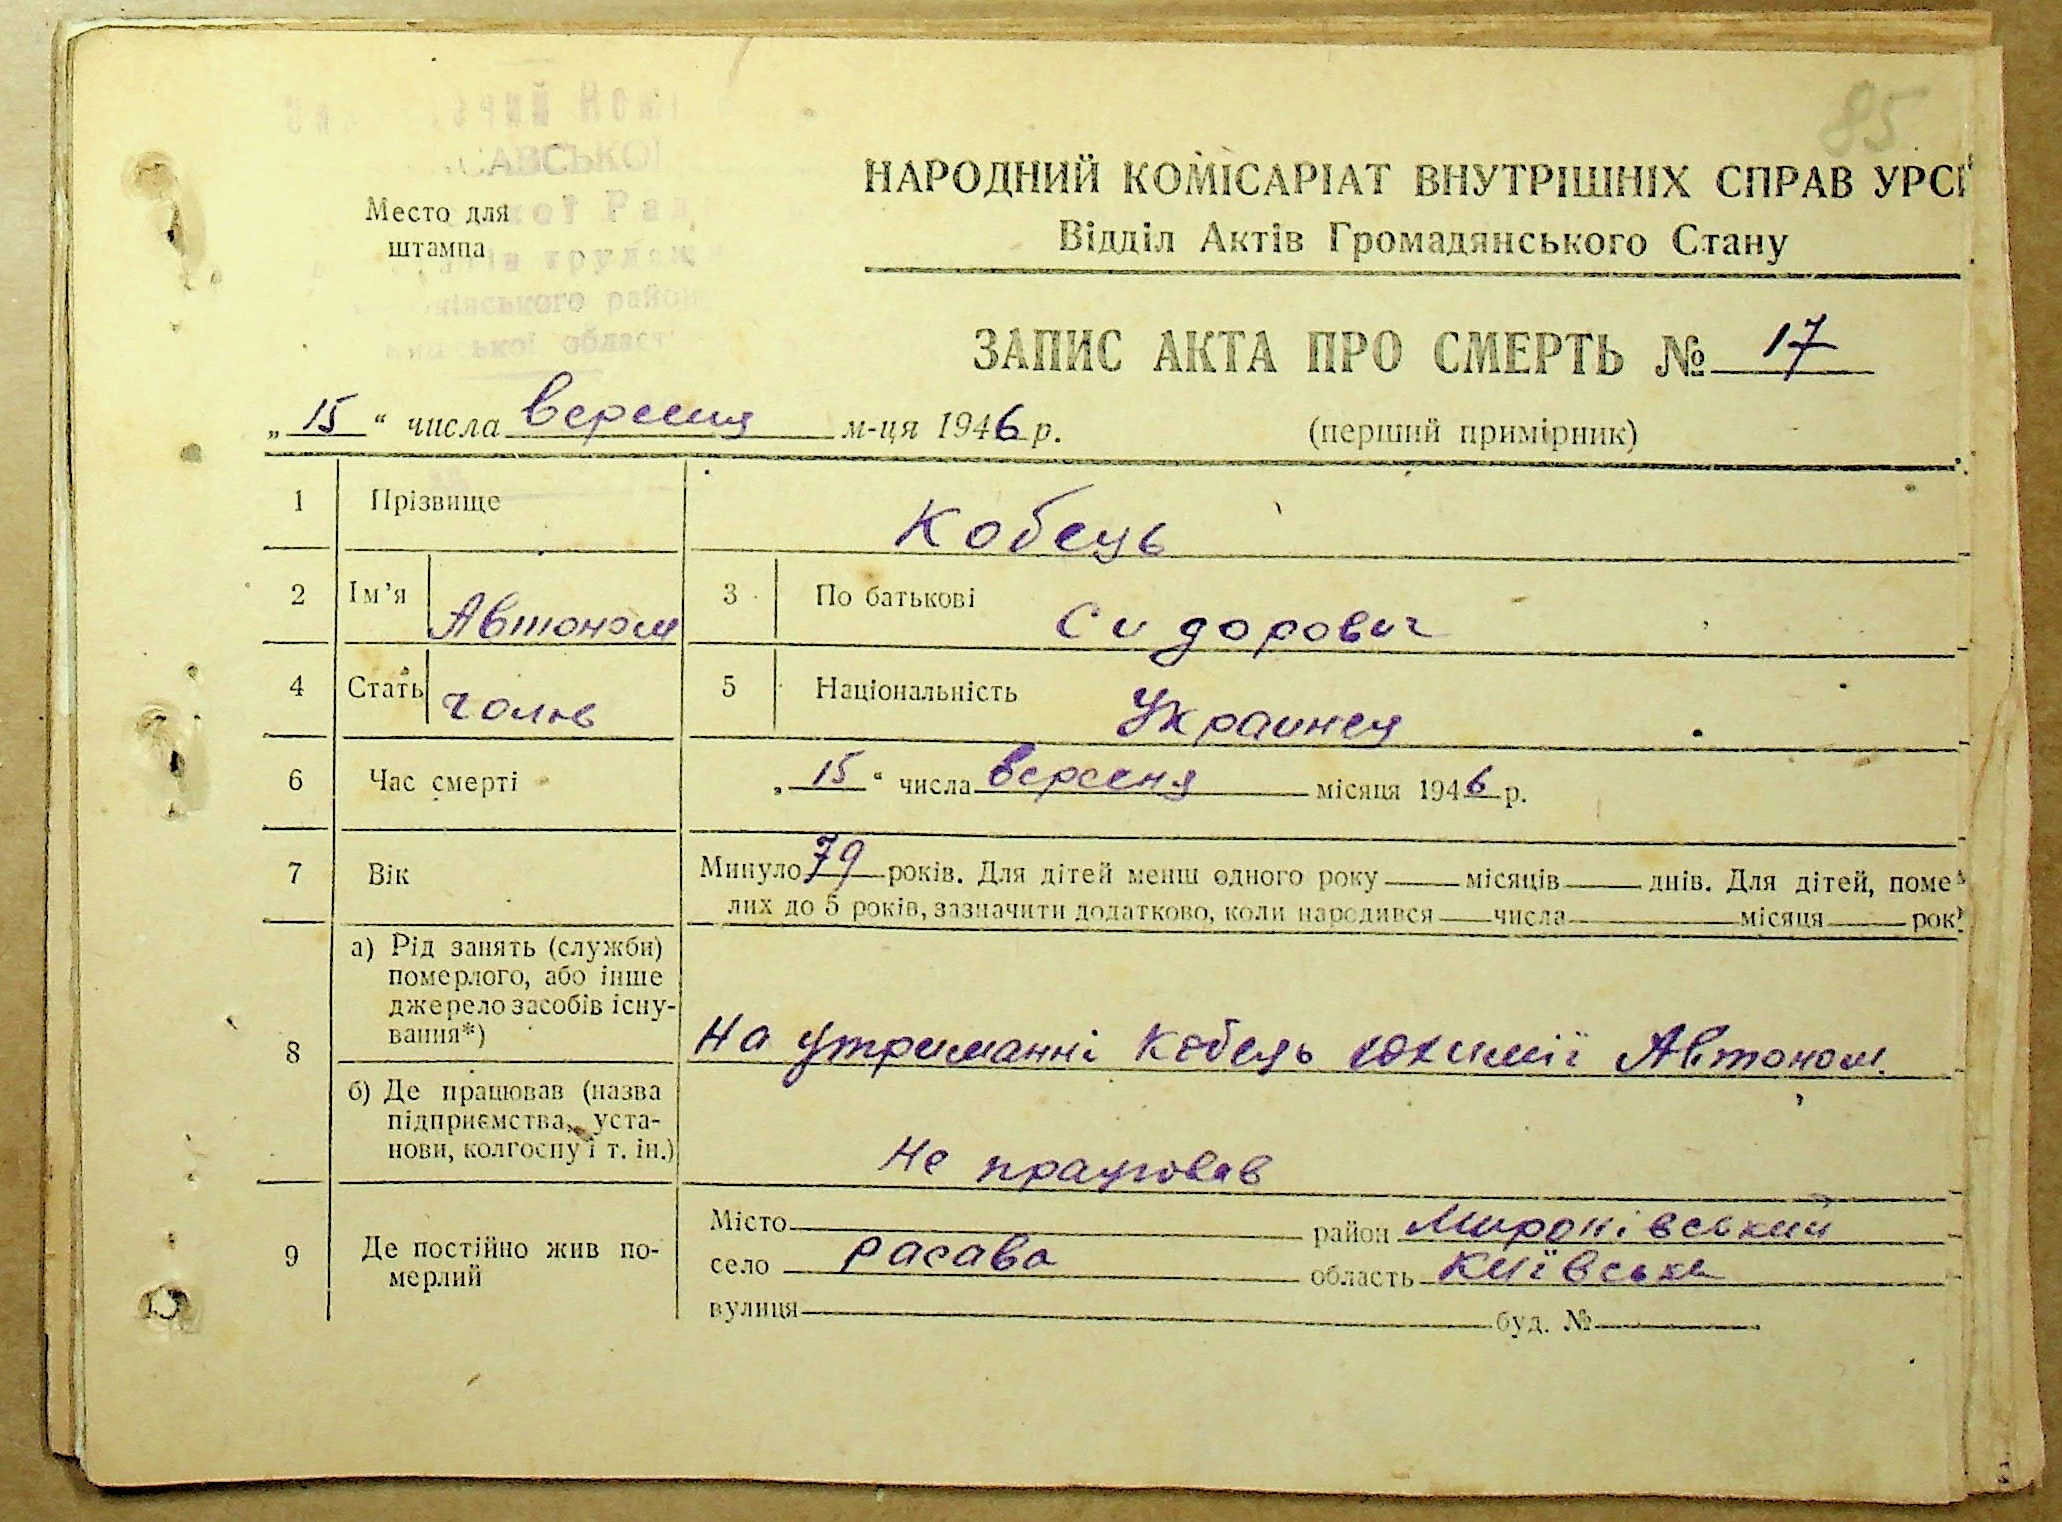 85
НАРОДНИЙ КОМІСАРІАТ ВНУТРІШНІХ СПРАВ УРСР
Відділ Актів Громадянського Стану
Место для
штампа
САВСЬКОЇ
ої Рад
трудящ
нівського район
ської област
ЗАПИС АКТА ПРО СМЕРТЬ № 17
„ 15 “ числа вересня м-ця 1946 р. (перший примірник)
1 Прізвище Кобець
2 Ім’я Автоном 3 По батькові Сидорович
4 Стать чолов 5 Національність Украинец
6 Час смерті „ 15 “ числа вересня місяця 1946 р.
7 Вік Минуло 79 років. Для дітей менш одного року місяців днів. Для дітей, поме
лих до 5 років, зазначити додатково, коли народився числа місяця рок
8 а) Рід занять (служби)
померлого, або інше
джерело засобів існу-
вання*)
На утриманні Кобець Юхимії Автоном.
б) Де працював (назва
підприємства, уста-
нови, колгоспу і т. ін.)
Не працював
9 Де постійно жив по-
мерлий
Місто район Миронівський
село Расава область Київська
вулиця буд. №